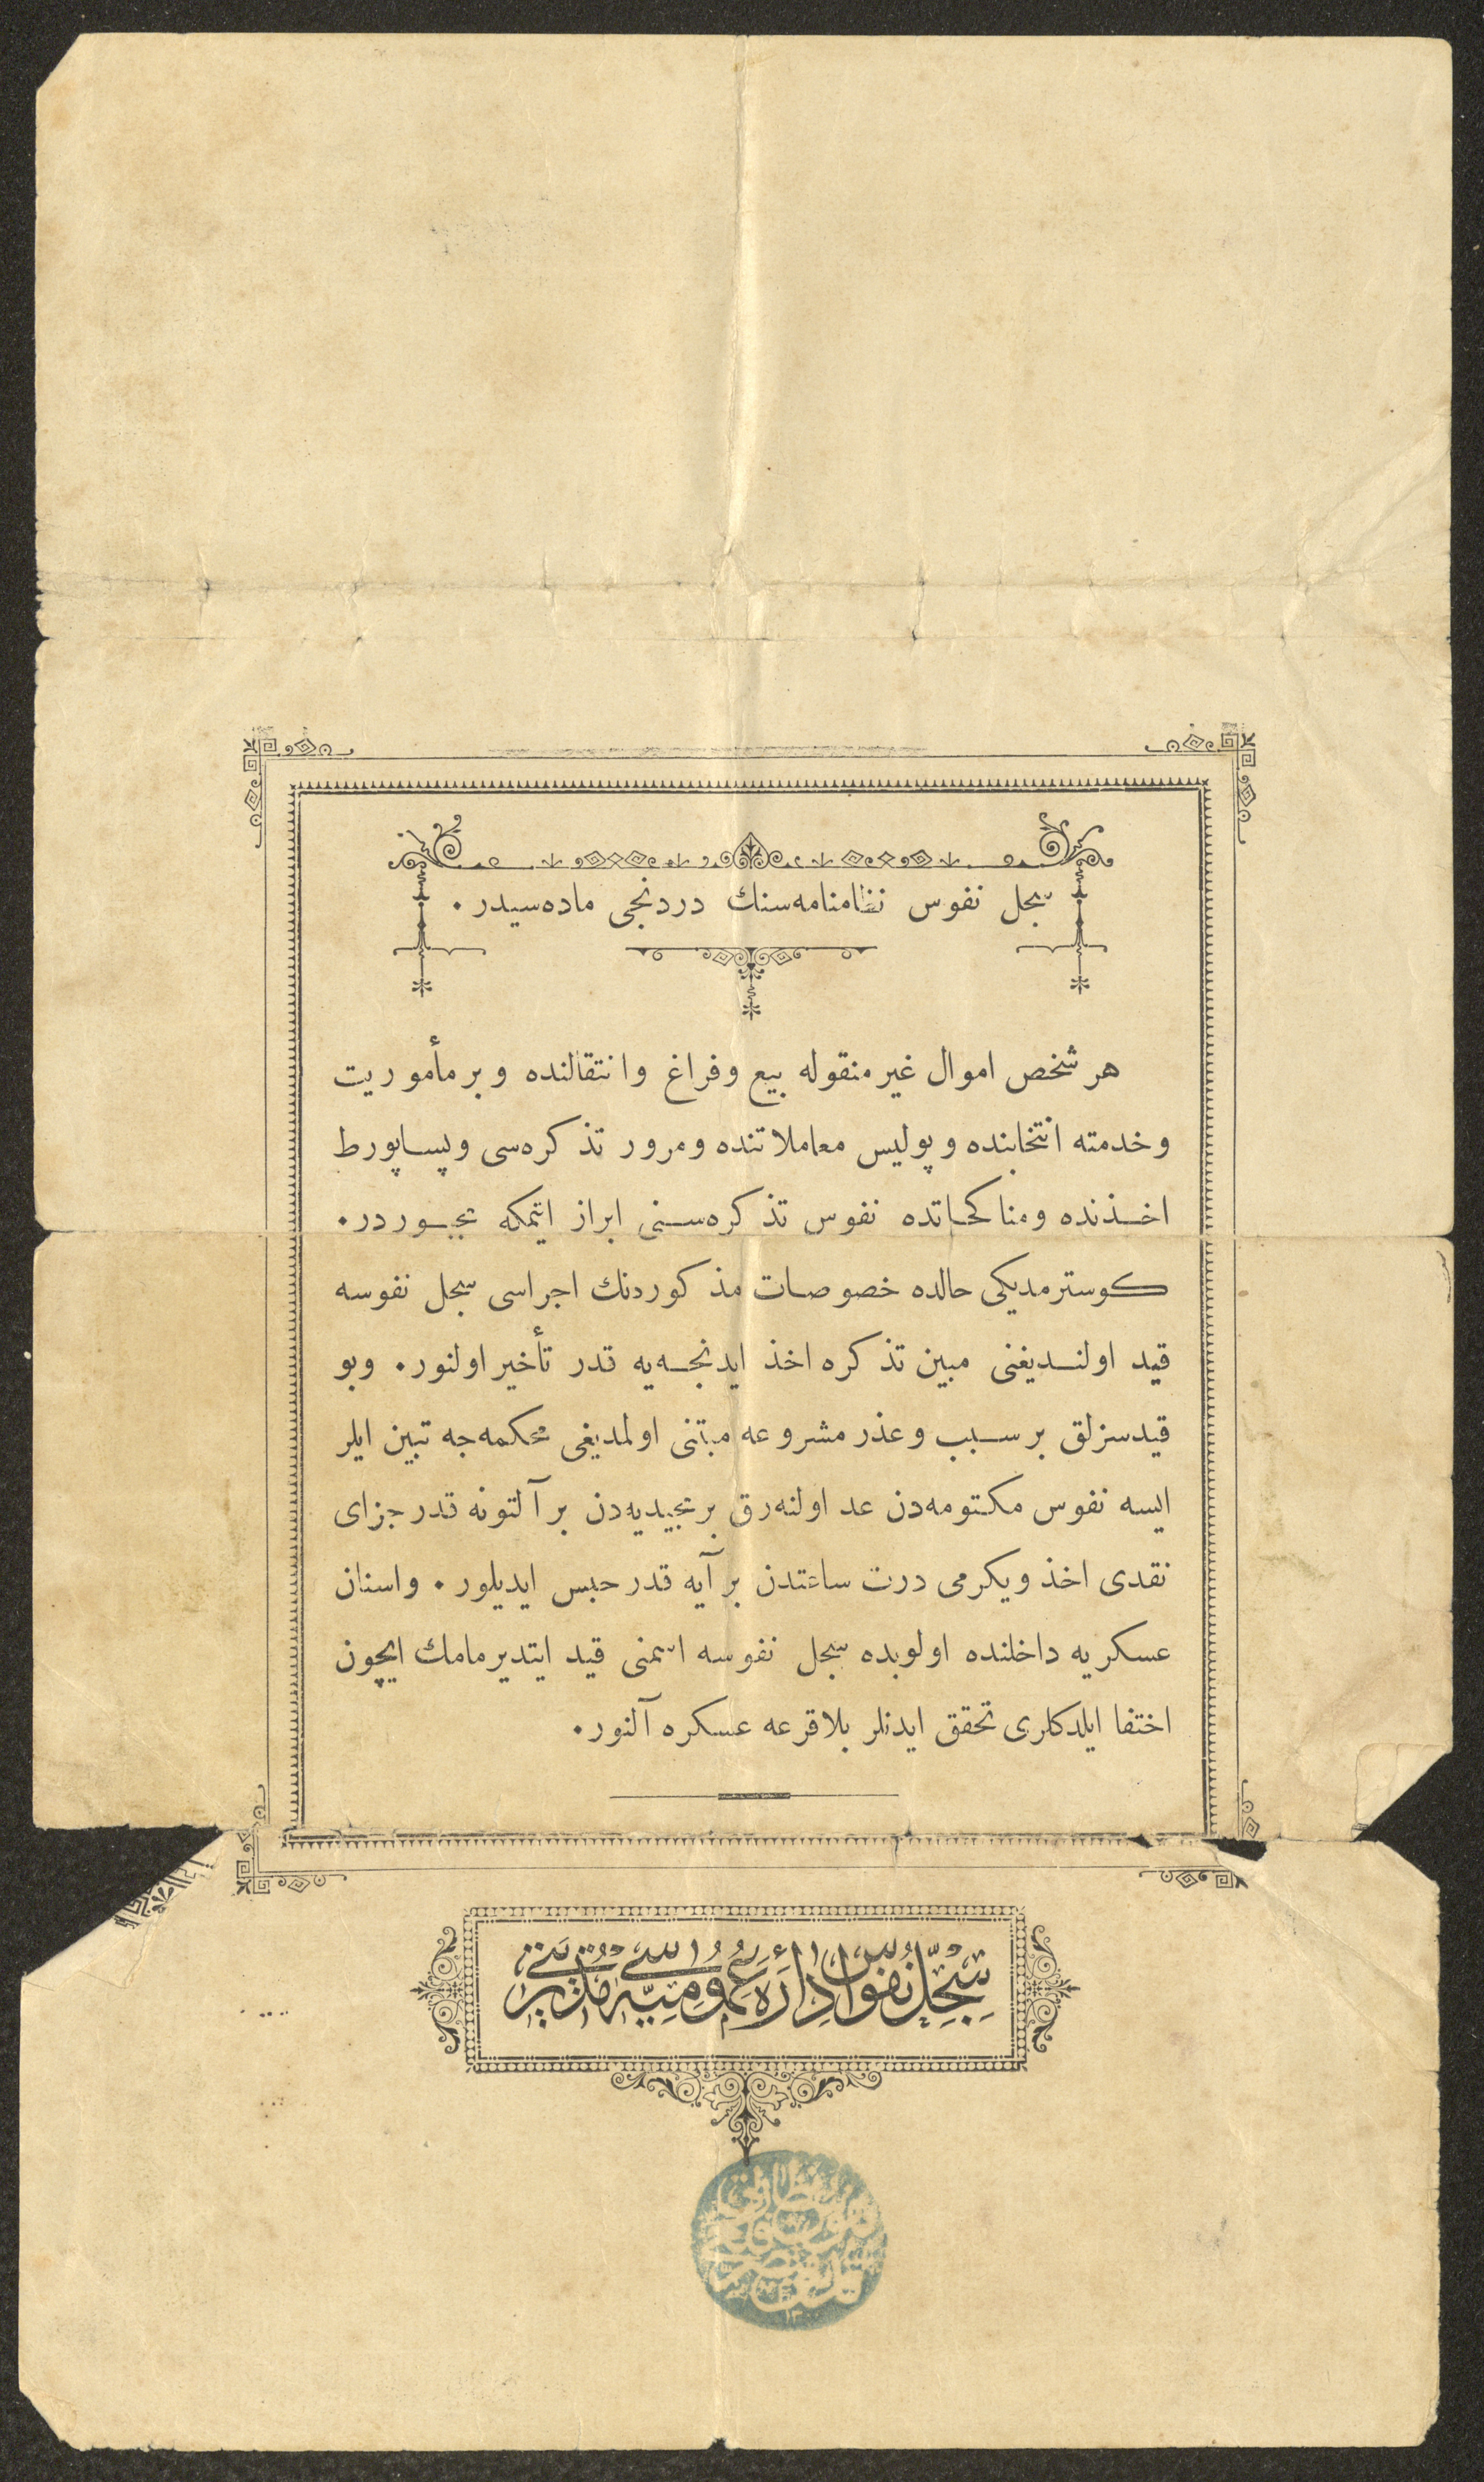 سجل نفوس نظامنامه‌سنك دردنجی ماده‌سیدر ٠
هر شخص اموال غیر منقوله بیع و فراغ و انتقالنده و بر مأموریت
و خدمته انتخابنده و پولیس معاملاتنده و مرور تذكره‌سی و پساپورط
اخذنده و مناكحاتده نفوس تذكره‌سنی ابراز ایتمكه مجبوردر ٠
كوسترمدیكی حالده خصوصات مذكوردنك اجراسی سجل نفوسه
قید اولندیغنی مبین تذكره اخذ ایدنجه‌یه قدر تأخیر اولنور ٠ و بو
قیدسزلق بر سبب و عذر مشروعه مبتنی اولمدیغی محكمه‌جه تبین ایلر
ایسه نفوس مكتومه‌دن عد اولنه‌رق بر مجیدیه‌دن بر آلتونه قدر جزای
نقدی اخذ و یكرمی درت ساعتدن بر آیه قدر حبس ایدیلور ٠ و اسنان
عسكریه داخلنده اولوبده سجل نفوسه اسمنی قید ایتدیرمامك ایچون
اختفا ایلدكلری تحقق ایدنلر بلا قرعه عسكره آلنور ٠
سِجِلِّ نُفُوس اِدَارَۀ عُمُومِيَّه‌سی مُدِیریَتی